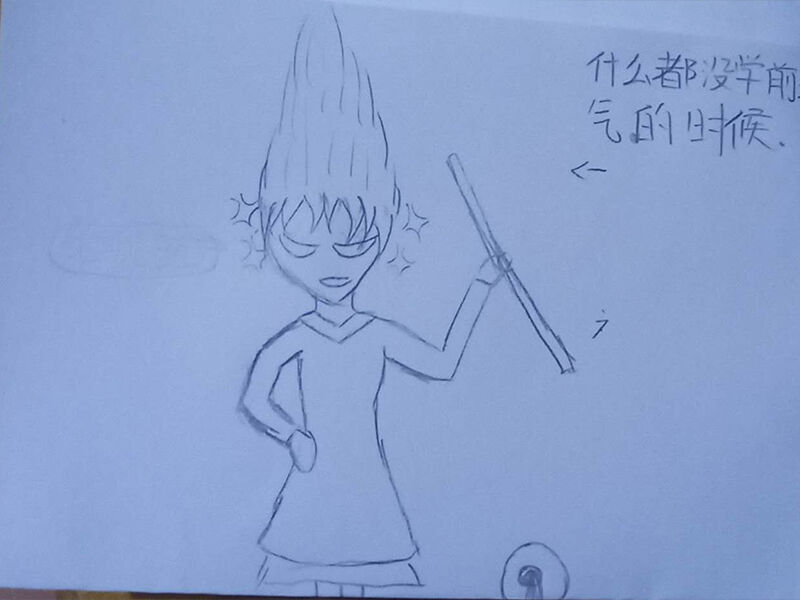 什么都没学前
气的时候.